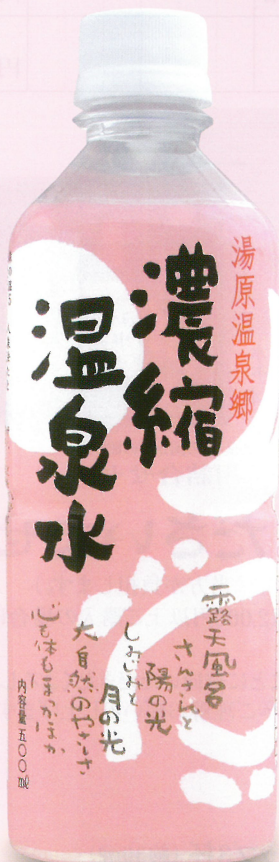 湯原温泉郷
濃縮
温泉水
露天風呂
さんさんと
陽の光
しみじみと
月の光
大自然のやさしさ
心も体もぽっかぽか
内容量五〇〇㎖